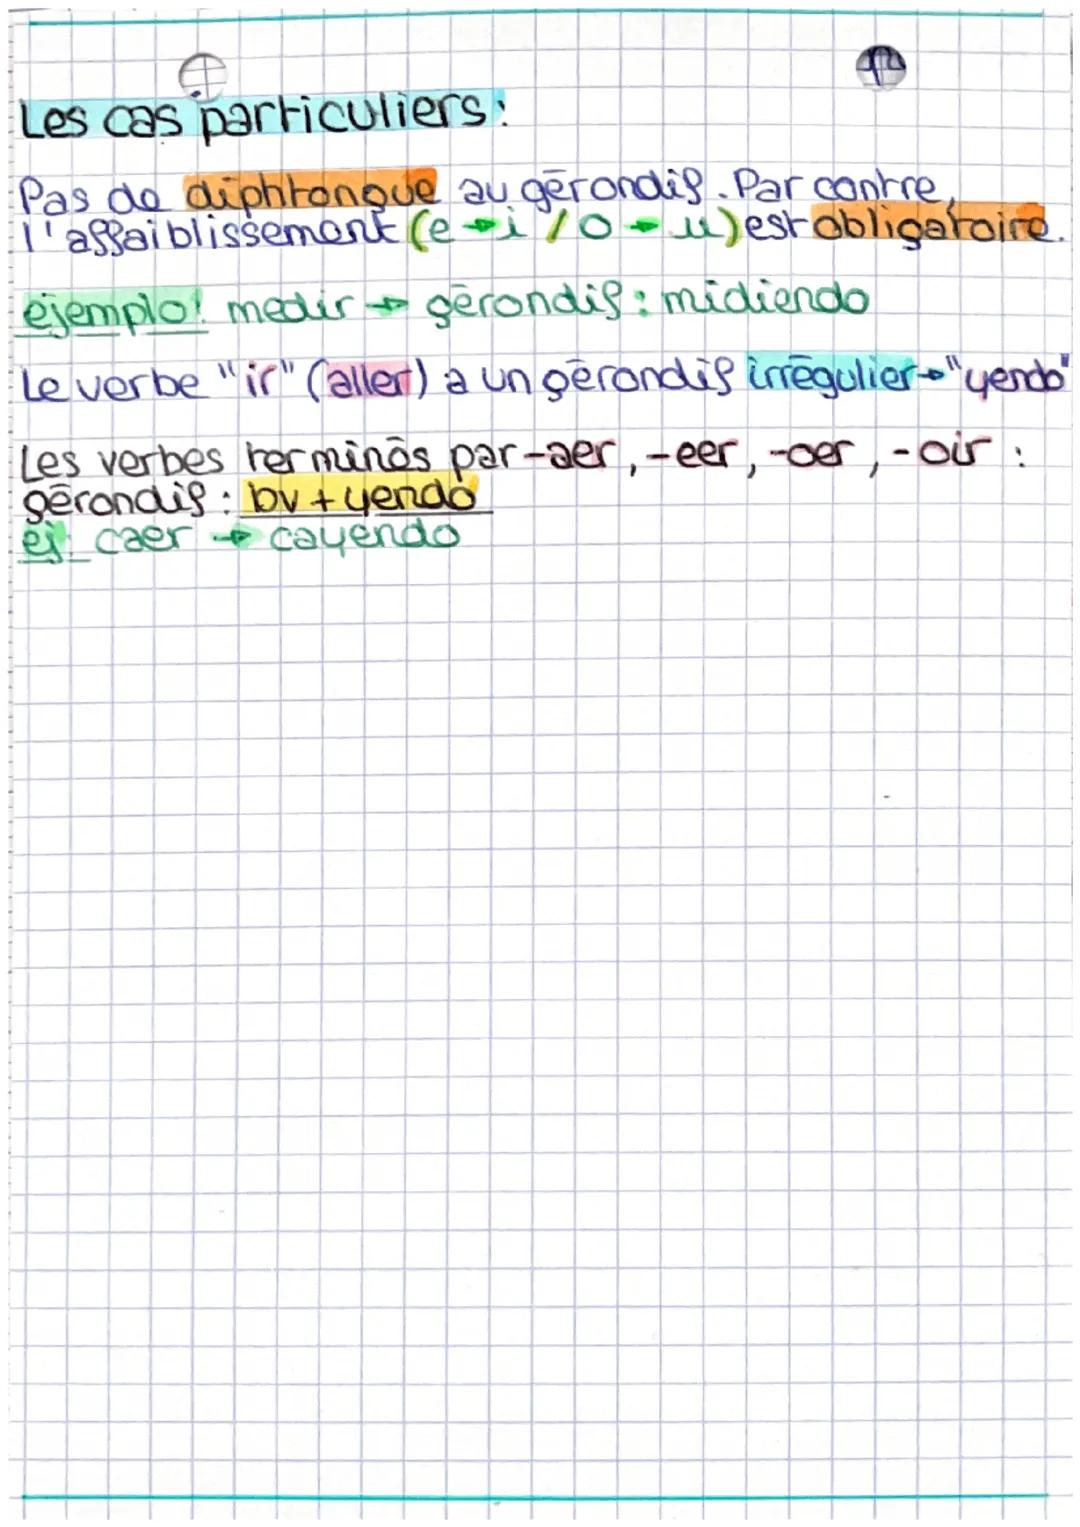 Les cas particuliers:
Pas de diphtongue au gérondif. Par contre,
l'affaiblissement (e→i / o→u) est obligatoire.
ejemplo: medir → gérondif: midiendo
Le verbe "ir" (aller) a un gérondif irrégulier→"yendo"
Les verbes terminés par -aer, -eer, -oer, -oir :
gérondif: bv + yendo
ej: caer → cayendo